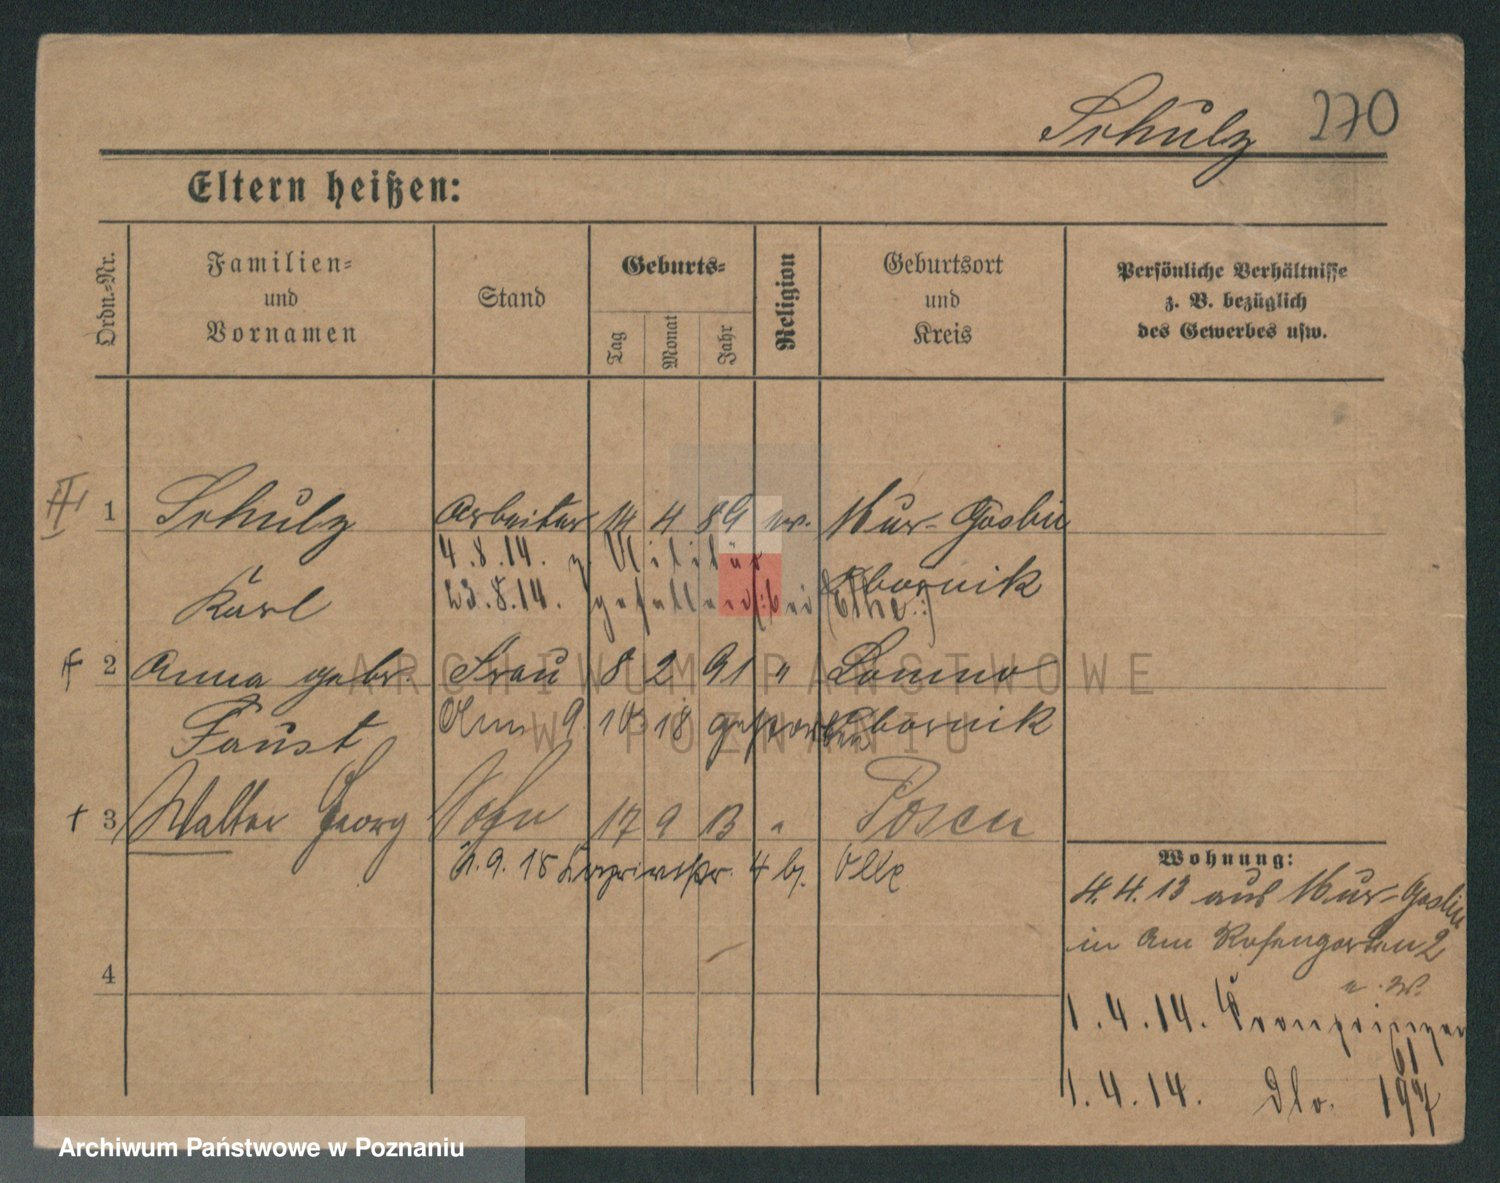 Schulz 270
Eltern heißen:
Ordn.-Nr.
Familien-
und
Vornamen
Stand
Geburts-
Tag
Monat
Jahr
Religion
Geburtsort
und
Kreis
Persönliche Verhältnisse
z. B. bezüglich
des Gewerbes usw.
1 Schulz Arbeiter 14 4 89 ev. Mur-Goslin
4.8.14. z. Militär
Karl Obornik
23.8.14. gefallen
2 Anna gebr. Frau 8 2 91 "
Faust 9. 10. 18 gestorben Obornik
3 Walter Georg Sohn 17 9 13 " Posen
9. 18 4 b.
4
Wohnung:
4. 4. 13 aus Mur-Goslin
in Am Rosengarten 2
1.4.14. Kronprinzen
61
1.4.14. dto. 197
ARCHIWUM PAŃSTWOWE
W POZNANIU
Archiwum Państwowe w Poznaniu